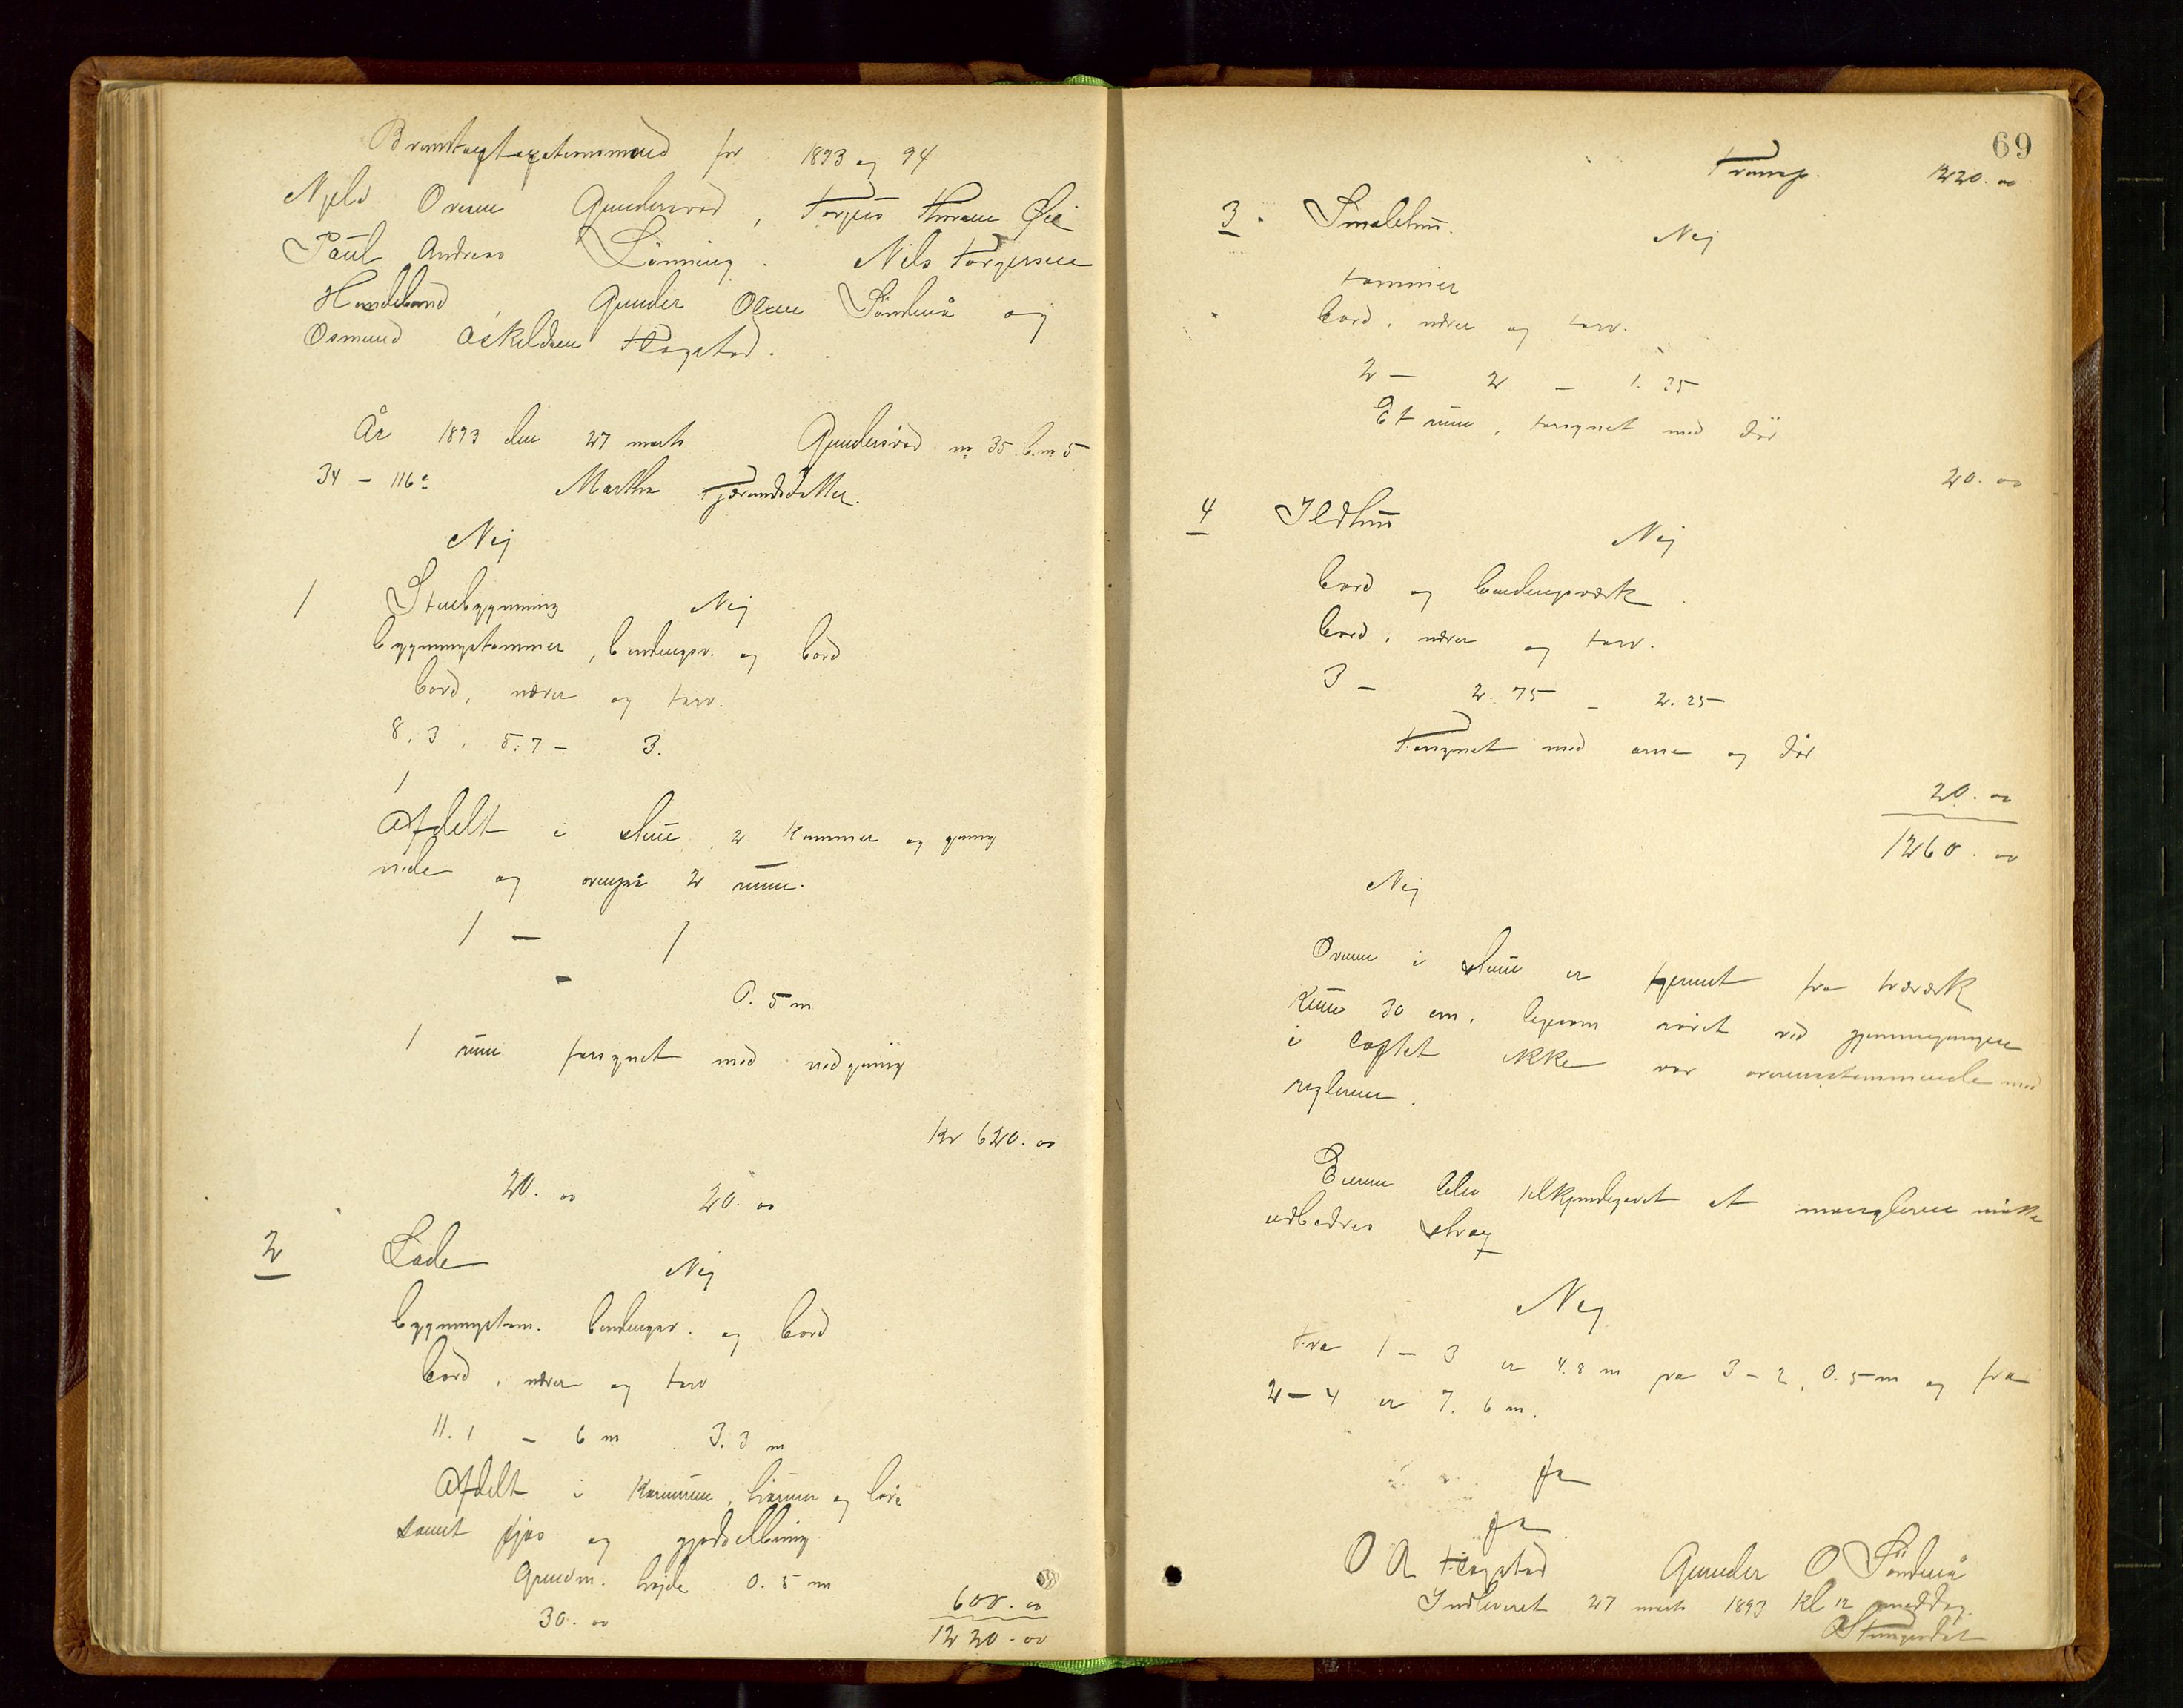 Brandtagtagstensmænd for 1893 og 94
Njeld Ovesen Gundersrød, Torjus Thorsen Øie
Paul Andreas Lønning. Nils Torgersen
Handeland, Gunder Olsen Søndenå og
Osmund Askeldsen Flogstad.
År 1893 den 27 marts. Gundersrød no 35. b. no 5
34 – 116 a Martha Tjærandsdatter.
Nej
1 Stuebygnning Nej
bygnningstømmer, bindingsv. og bord
bord, næver og torv.
8.3, 5.7 – 3.
1
Afdelt i stue, 2 kammer og gang
nede og ovenpå 2 rum.
1 – 1
–
0.5 m
1 rum forsynet med nedgang
Kr 620.00
20.00 20.00
2 Lade Nej
bygnningstøm. bindingsv. og bord
bord, næver og torv
11.1 – 6 m 3.3 m
Afdelt i kornrum, hørum og lave
samt fjøs og gjødselbing
Grundm. højde 0.5 m
30.00 600.00
1220.00
69
Transp. 1220.00
3. Smalehus. Nej
tømmer
bord, næver og torv.
2 – 2 – 1.35
Et rum, forsynet med dør
20.00
4 Ildhus Nej
bord og bindingsværk.
bord, næver og torv.
3 – 2.75 – 2.25
Forsynet med arne og dør
20.00
1260.00
Nej
Ovnen i stuen er fjernet fra træværk
kun 30 cm. ligesom røret ved gjennemgangen
i loftet ikke var overensstemmende med
reglerne.
Eieren blev tilkjendegivet at manglerne måtte
udbedres strax
Nej
Fra 1 – 3 er 4.8 m fra 3 – 2, 0.5 m og fra
2 – 4 er 7.6 m.
Ja
Ja
O A Flogstad Gunder O Søndenå
Indleveret 27 marts 1893 kl 12 middag.